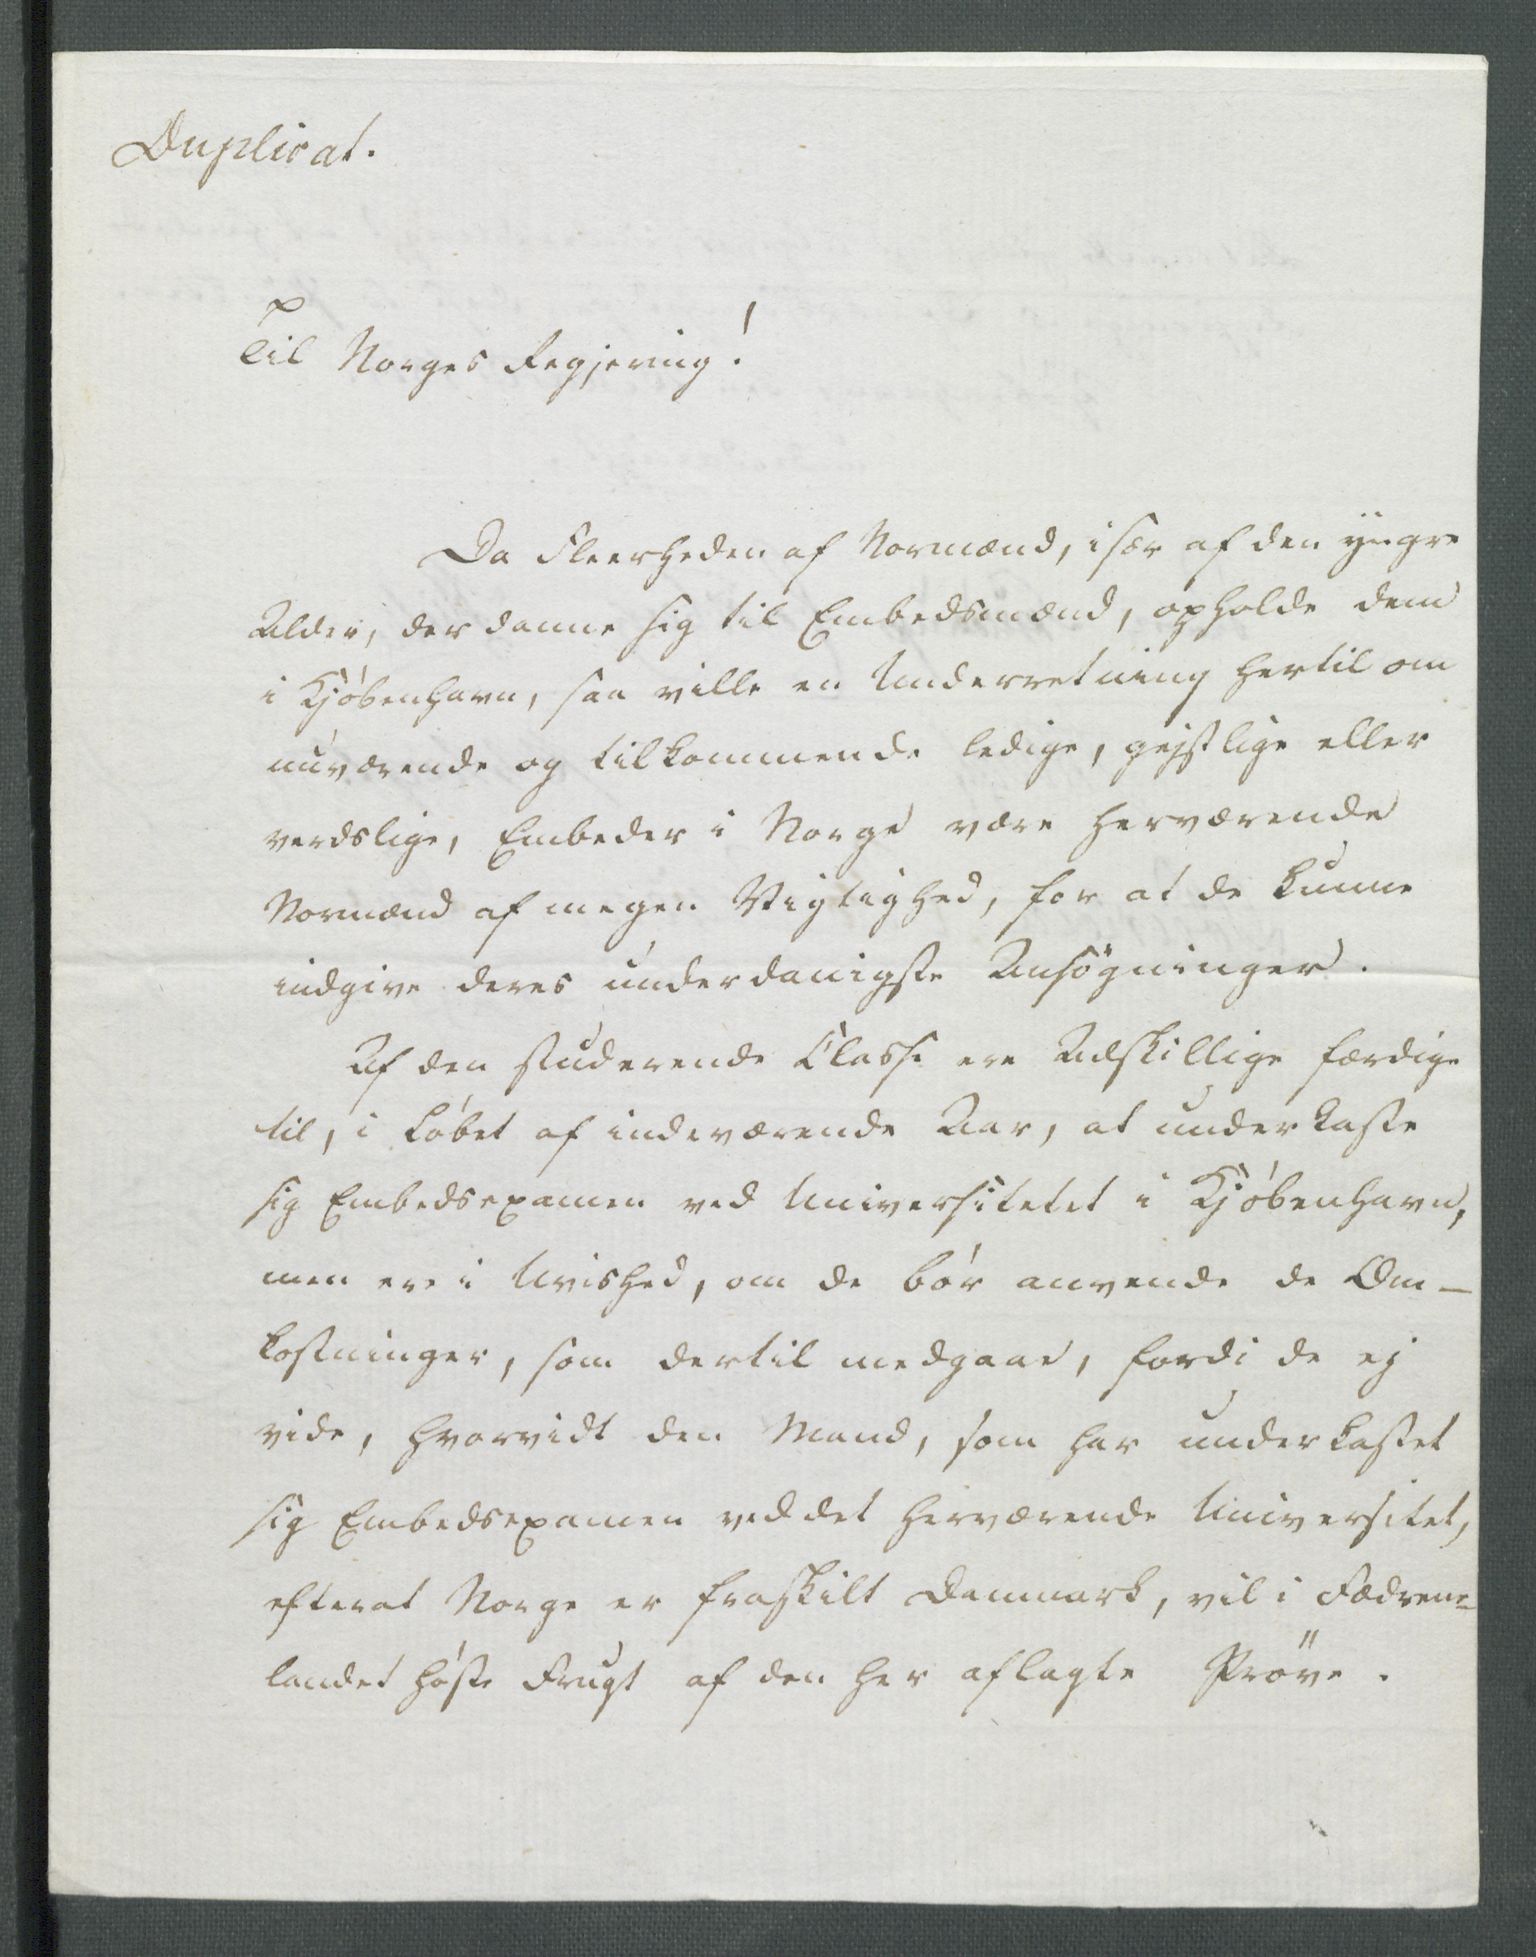 Duplicat.
Til Norges Regjering!
Da Fleerheden af Normænd, især af den yngre
Alder, der danne sig til Embedsmænd, opholde dem
i Kjóbenhavn, saa ville en Underretning hertil om
nuværende og tilkommende ledige, gejstlige eller
verdslige, Embeder i Norge være herværende
Normænd af megen Vigtighed, for at de kunne
indgive deres underdanigste Ansögninger.
Af den studerende Classe ere Adskillige færdige
til, i Lóbet af indeværende Aar, at underkaste
sig Embedsexamen ved Universitetet i Kjóbenhavn,
men ere i Uvished, om de bór anvende de Om-
kostninger, som dertil medgaae, fordi de ej
vide, hvorvidt den Mand, som har underkastet
sig Embedsexamen ved det herværende Universitet,
efterat Norge er fraskilt Danmark, vil i Fædrene-
landet hóste Frugt af den her aflagte Pröve.